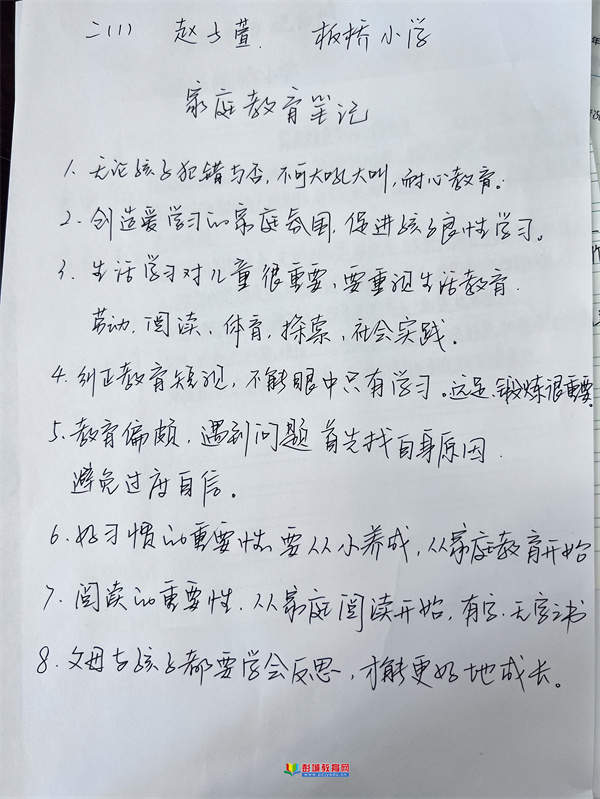 二(1) 赵上萱. 板桥小学
家庭教育笔记
1. 无论孩子犯错与否,不可大吼大叫,耐心教育。
2. 创造爱学习的家庭氛围,促进孩子良性学习。
3. 生活学习对儿童很重要,要重视生活教育.
劳动,阅读,体育,探索,社会实践。
4. 纠正教育短视,不能眼中只有学习。这是、锻炼很重要.
5. 教育偏颇,遇到问题首先找自身原因.
避免过度自信。
6. 好习惯的重要性.要从小养成,从家庭教育开始
7. 阅读的重要性.从家庭阅读开始,有字.无字之书
8. 父母与孩子都要学会反思,才能更好地成长。
彭城教育网